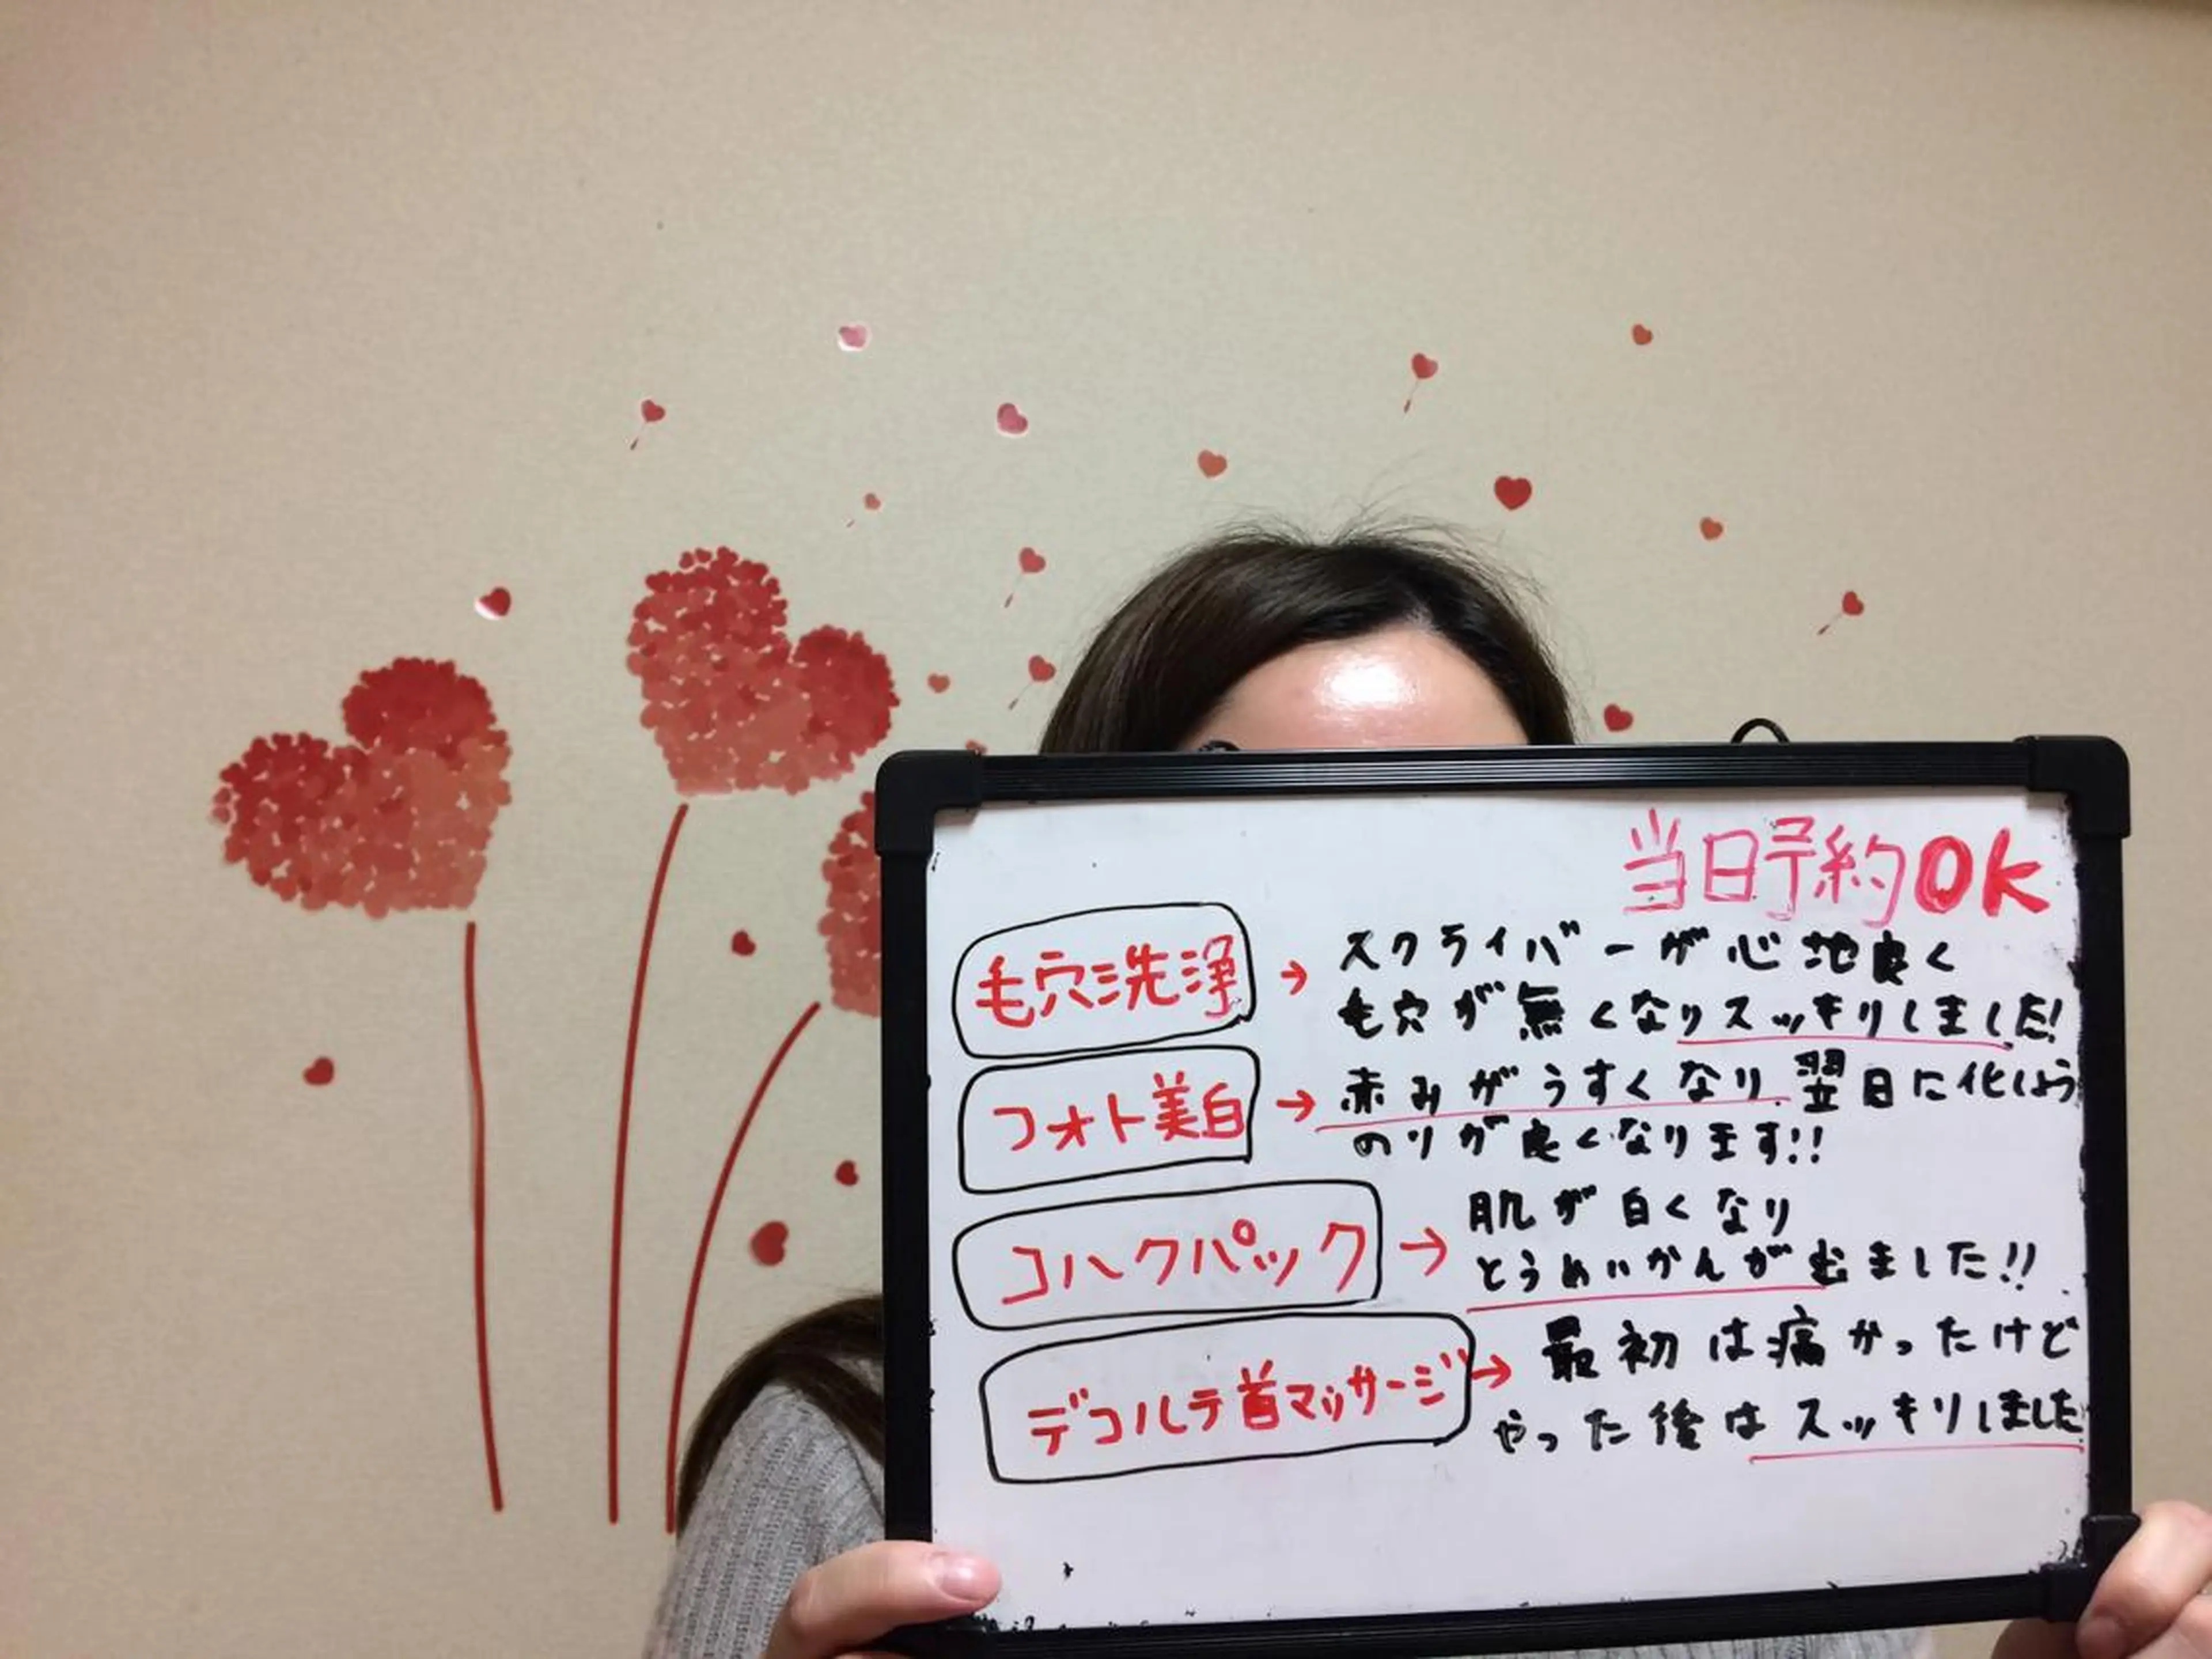 当日予約OK
毛穴洗浄 → スクライバーが心地良く
毛穴が無くなりスッキリしました!
フォト美白 → 赤みがうすくなり翌日に化しょう
のりが良くなります!!
コハクパック → 肌が白くなり
とうめいかんが出ました!!
デコルテ首マッサージ → 最初は痛かったけど
やった後はスッキリしました